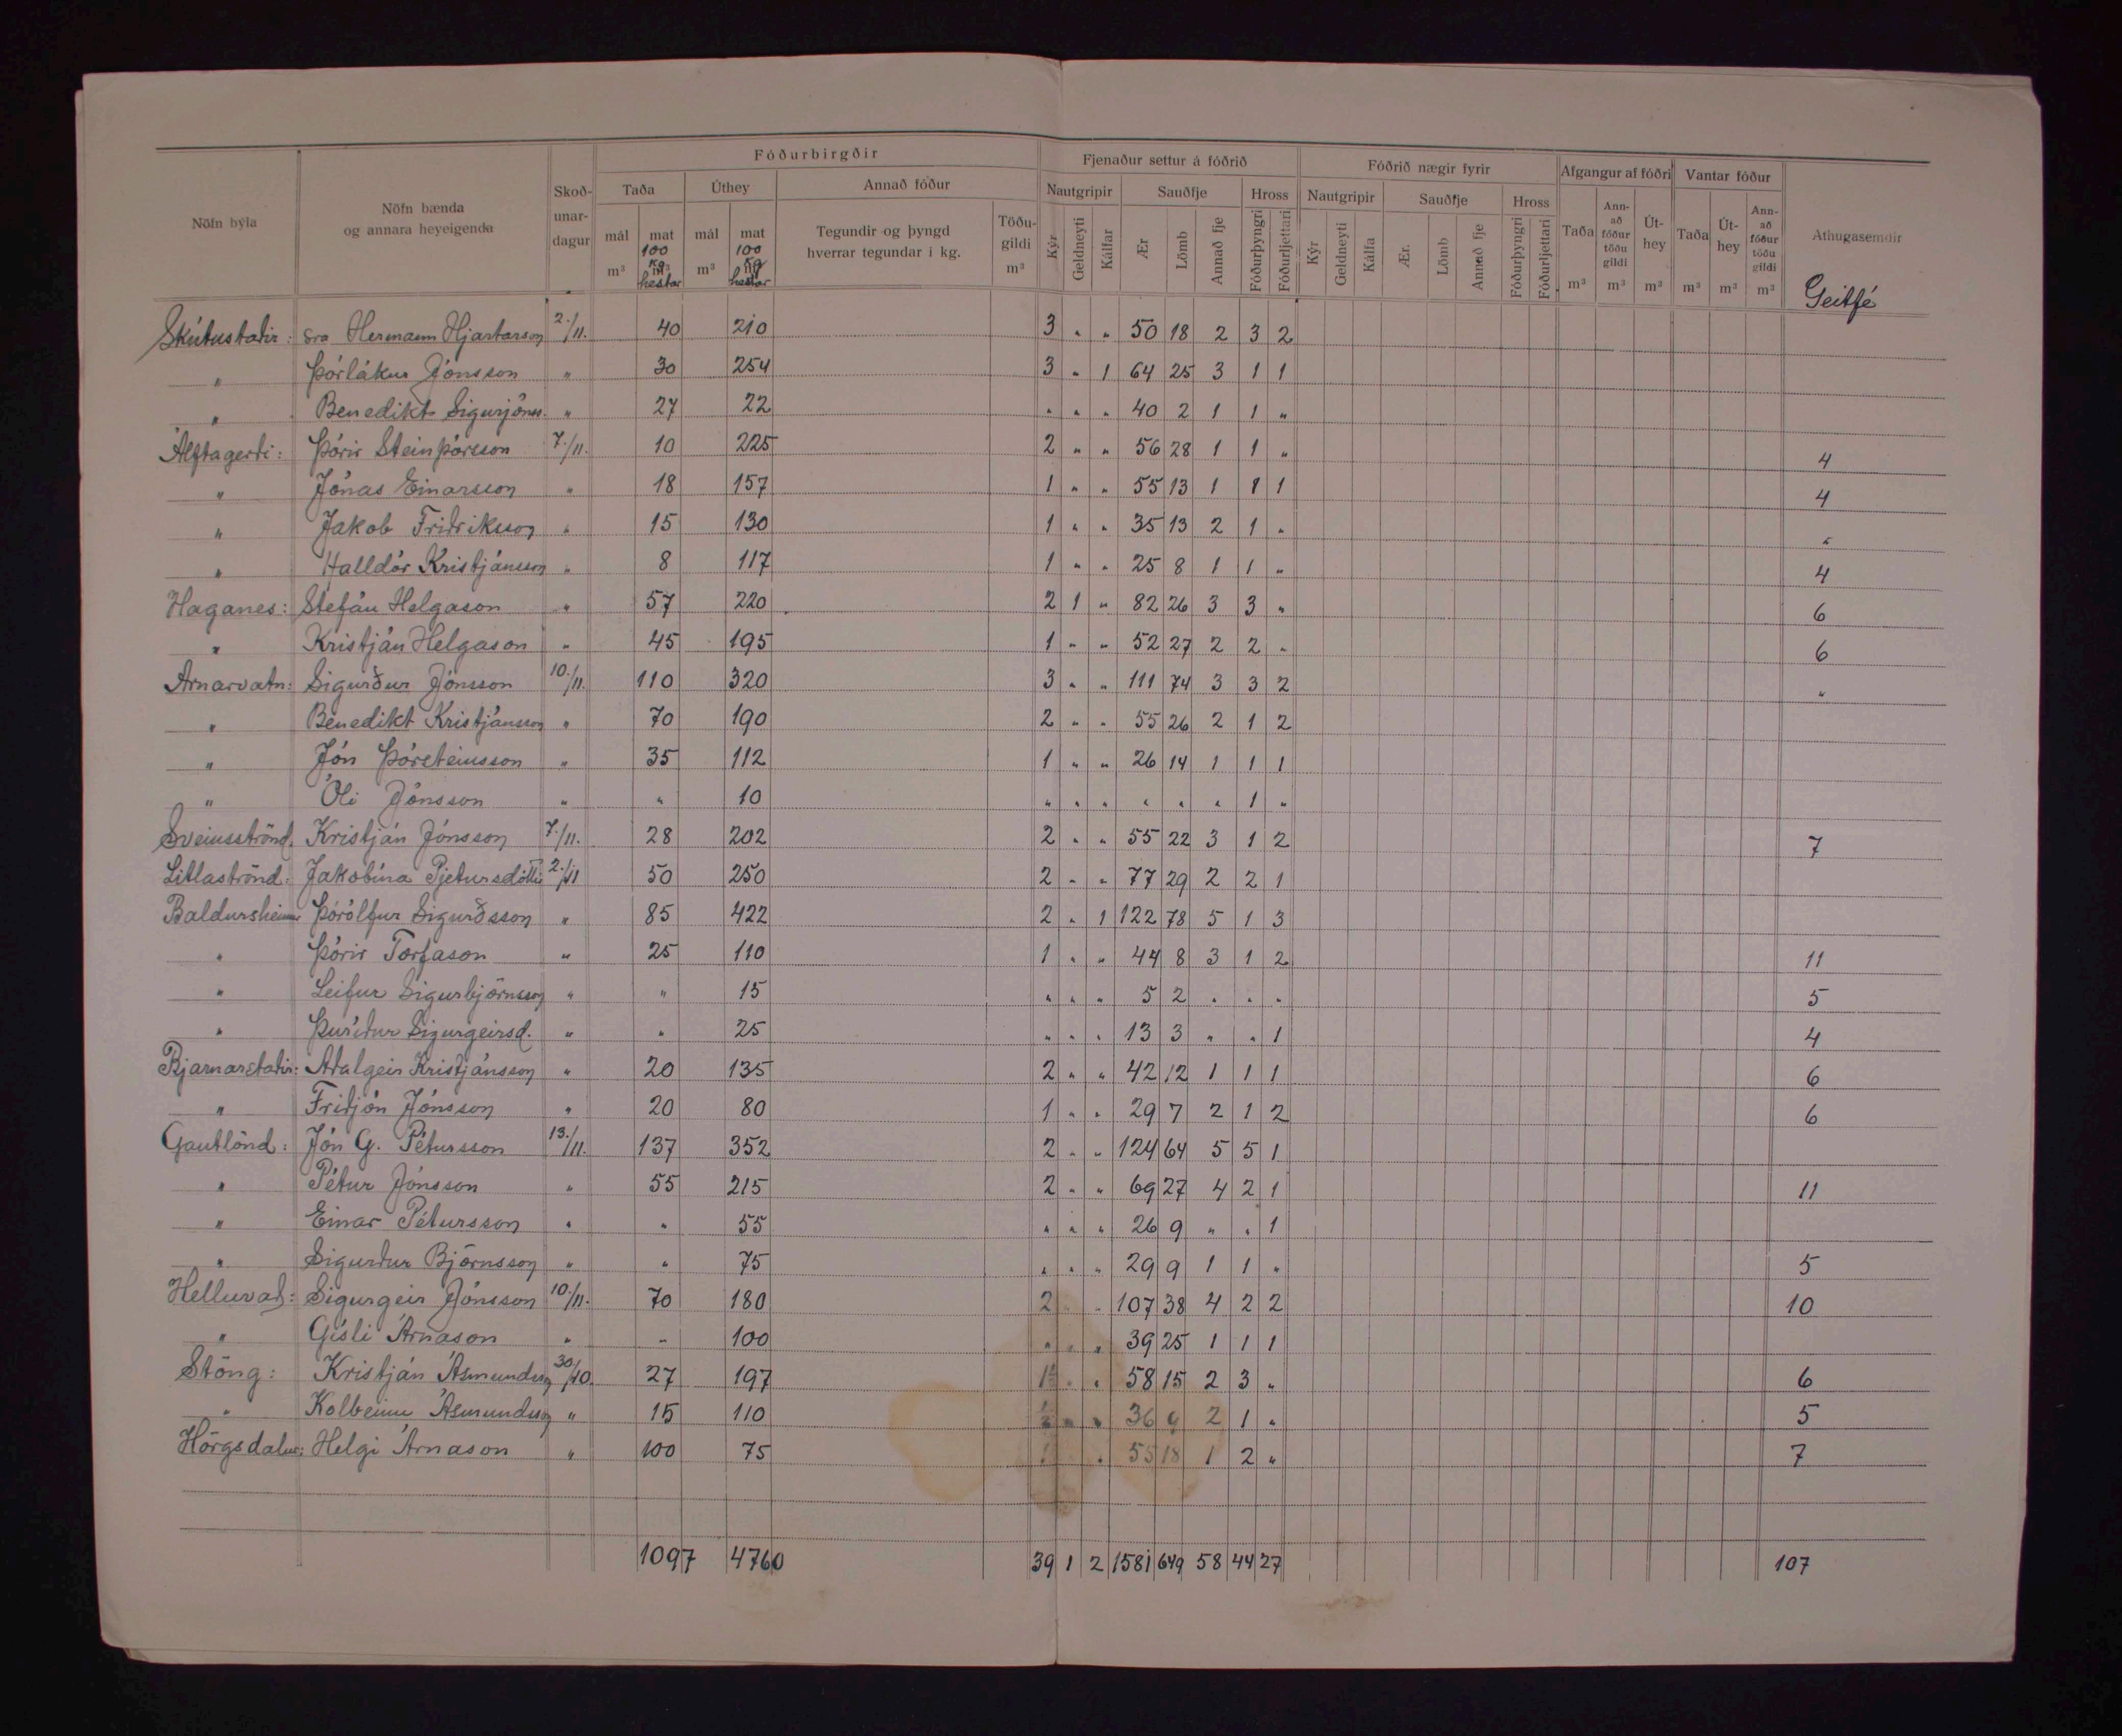 Nöfn býla | Nöfn bænda og annara heyeigenda | Skoðunardagur | Fóðurbirgðir | Fjenaður settur á fóðrið | Fóðrið nægir fyrir | Afgangur af fóðri | Vantar fóður | Athugasemdir
Taða | Úthey | Annað fóður | Nautgripir | Sauðfje | Hross | Nautgripir | Sauðfje | Hross | Taða m³ | Annað fóður töðu gildi m³ | Úthey m³ | Taða m³ | Úthey m³ | Annað fóður töðu gildi m³
mál m³ | mat 100 kg m³ hestar | mál m³ | mat 100 kg hestar | Tegundir og þyngd hverrar tegundar í kg. | Töðugildi m³ | Kýr | Geldneyti | Kálfar | Ær | Lömb | Annað fje | Fóðurþyngri | Fóðurljettari | Kýr | Geldneyti | Kálfa | Ær. | Lömb | Annað fje | Fóðurþyngri | Fóðurljettari | Geitfé
Skútustaðir: | sra Hermann Hjartarson | 2./11. | 40 | 210 | 3 | " | " | 50 | 18 | 2 | 3 | 2
" | Þórlákur Jónsson | " | 30 | 254 | 3 | " | 1 | 64 | 25 | 3 | 1 | 1
" | Benedikt Sigurjónss. | " | 27 | 22 | " | " | " | 40 | 2 | 1 | 1 | "
Álftagerði: | Þórir Steinþórsson | 7./11. | 10 | 225 | 2 | " | " | 56 | 28 | 1 | 1 | " | 4
" | Jónas Einarsson | " | 18 | 157 | 1 | " | " | 55 | 13 | 1 | 1 | 1 | 4
" | Jakob Friðriksson | " | 15 | 130 | 1 | " | " | 35 | 13 | 2 | 1 | " | "
" | Halldór Kristjánsson | " | 8 | 117 | 1 | " | " | 25 | 8 | 1 | 1 | " | 4
Haganes: | Stefán Helgason | " | 57 | 220 | 2 | 1 | " | 82 | 26 | 3 | 3 | " | 6
" | Kristján Helgason | " | 45 | 195 | 1 | " | " | 52 | 27 | 2 | 2 | " | 6
Arnarvatn: | Sigurður Jónsson | 10./11. | 110 | 320 | 3 | " | " | 111 | 74 | 3 | 3 | 2 | "
" | Benedikt Kristjánsson | " | 70 | 190 | 2 | " | " | 55 | 26 | 2 | 1 | 2
" | Jón Þórsteinsson | " | 35 | 112 | 1 | " | " | 26 | 14 | 1 | 1 | 1
" | Óli Jónsson | " | " | 10 | " | " | " | " | " | " | 1 | "
Sveinsströnd: | Kristján Jónsson | 7./11. | 28 | 202 | 2 | " | " | 55 | 22 | 3 | 1 | 2 | 7
Litlaströnd: | Jakobína Pjetursdóttir | 2./11 | 50 | 250 | 2 | " | " | 77 | 29 | 2 | 2 | 1
Baldursheimur | Þórólfur Sigurðsson | " | 85 | 422 | 2 | " | 1 | 122 | 78 | 5 | 1 | 3
" | Þórir Torfason | " | 25 | 110 | 1 | " | " | 44 | 8 | 3 | 1 | 2 | 11
" | Leifur Sigurbjörnsson | " | " | 15 | " | " | " | 5 | 2 | " | " | " | 5
" | Þuríður Sigurgeirsd. | " | " | 25 | " | " | " | 13 | 3 | " | " | 1 | 4
Bjarnarstaðir: | Aðalgeir Kristjánsson | " | 20 | 135 | 2 | " | " | 42 | 12 | 1 | 1 | 1 | 6
" | Friðjón Jónsson | " | 20 | 80 | 1 | " | " | 29 | 7 | 2 | 1 | 2 | 6
Gautlönd: | Jón G. Pétursson | 13./11. | 137 | 352 | 2 | " | " | 124 | 64 | 5 | 5 | 1
" | Pétur Jónsson | " | 55 | 215 | 2 | " | " | 69 | 27 | 4 | 2 | 1 | 11
" | Einar Pétursson | " | " | 55 | " | " | " | 26 | 9 | " | " | 1
" | Sigurður Björnsson | " | " | 75 | " | " | " | 29 | 9 | 1 | 1 | " | 5
Helluvað: | Sigurgeir Jónsson | 10./11. | 70 | 180 | 2 | " | 107 | 38 | 4 | 2 | 2 | 10
" | Gísli Árnason | " | " | 100 | " | " | " | 39 | 25 | 1 | 1 | 1
Stöng: | Kristján Ásmundsson | 30/10. | 27 | 197 | 1½ | " | " | 58 | 15 | 2 | 3 | " | 6
" | Kolbeinn Ásmundsson | " | 15 | 110 | ½ | " | " | 36 | 9 | 2 | 1 | " | 5
Hörgsdalur: | Helgi Árnason | " | 100 | 75 | 1 | " | 55 | 18 | 1 | 2 | " | 7
1097 | 4760 | 39 | 1 | 2 | 1581 | 649 | 58 | 44 | 27 | 107